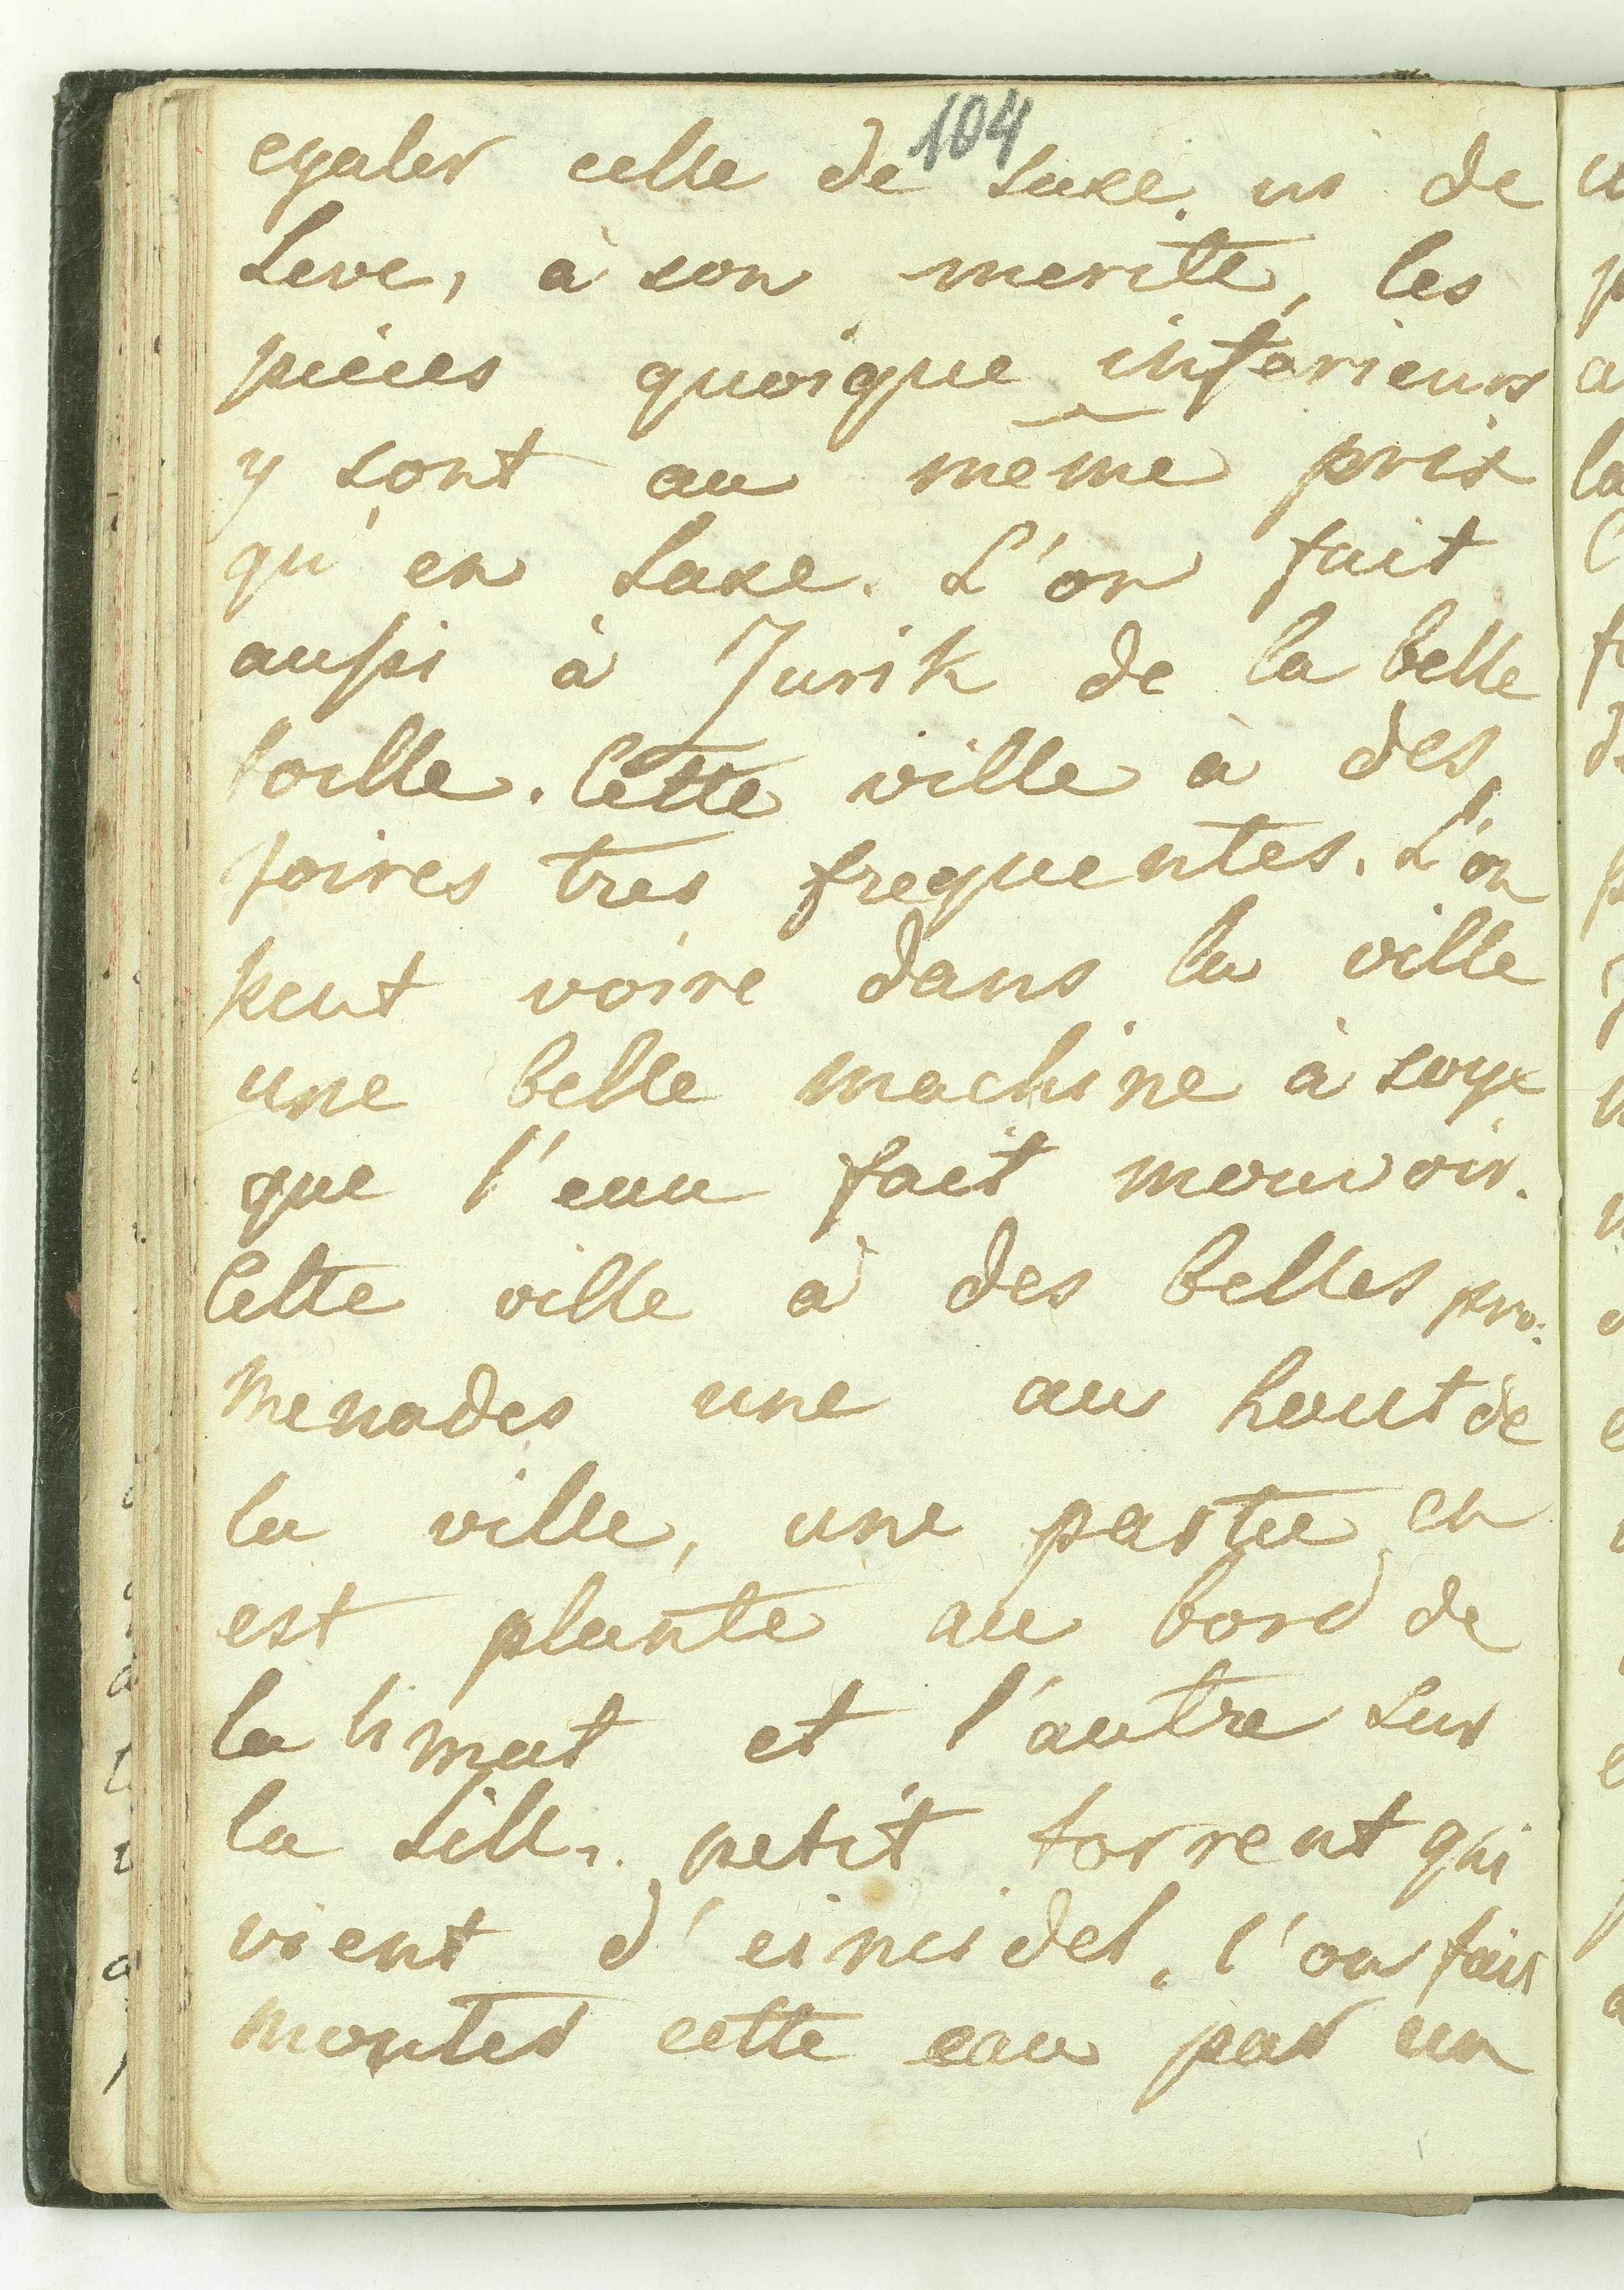 104
egaler celle de Saxe. ni de
Seve, à son merite, les
pièces quoique inferieurs
y sont au même prix
qu'en Saxe. L'on fait
aussi à Zurik de la belle
toille. Cette ville à des
foires tres frequentes. L'on
peut voire dans la ville
une belle machine à soye
que l'eau fait mouvoir.
Cette ville à des belles pro:
menades une au haut de
la ville, une partie en
est plante au bord de
la limat et l'autre sur
la Sill, petit torrent qui
vient d'einsidel, l'on fait
monter cette eau par un